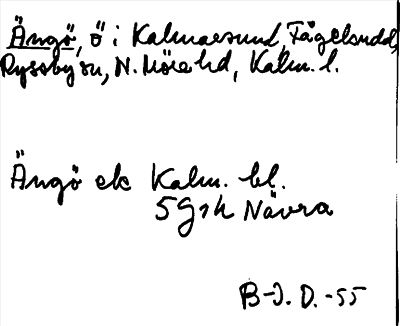 Ängö, ö i Kalmarsund, Fågelsudd,
Ryssby sn, N. Möre hd, Kalm. l.
Ängö ek Kalm. bl.
5G1h Nävra
B-J. D. -55